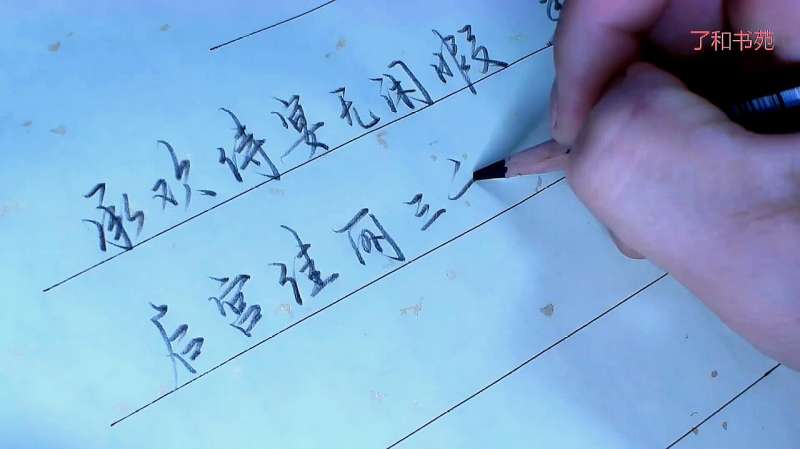 了和书苑
承欢侍宴无闲暇
后宫佳丽三